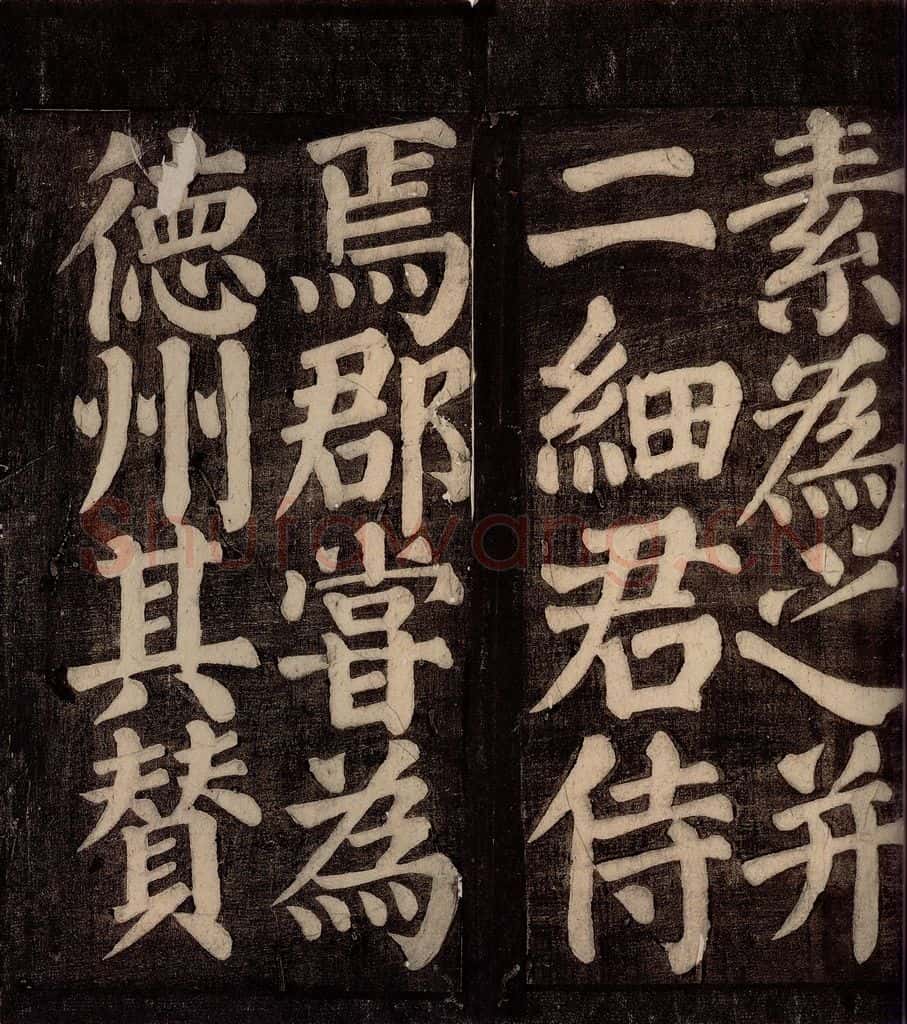 素為之并
二細君侍
焉郡嘗為
德州其贊
Shufawang.CN